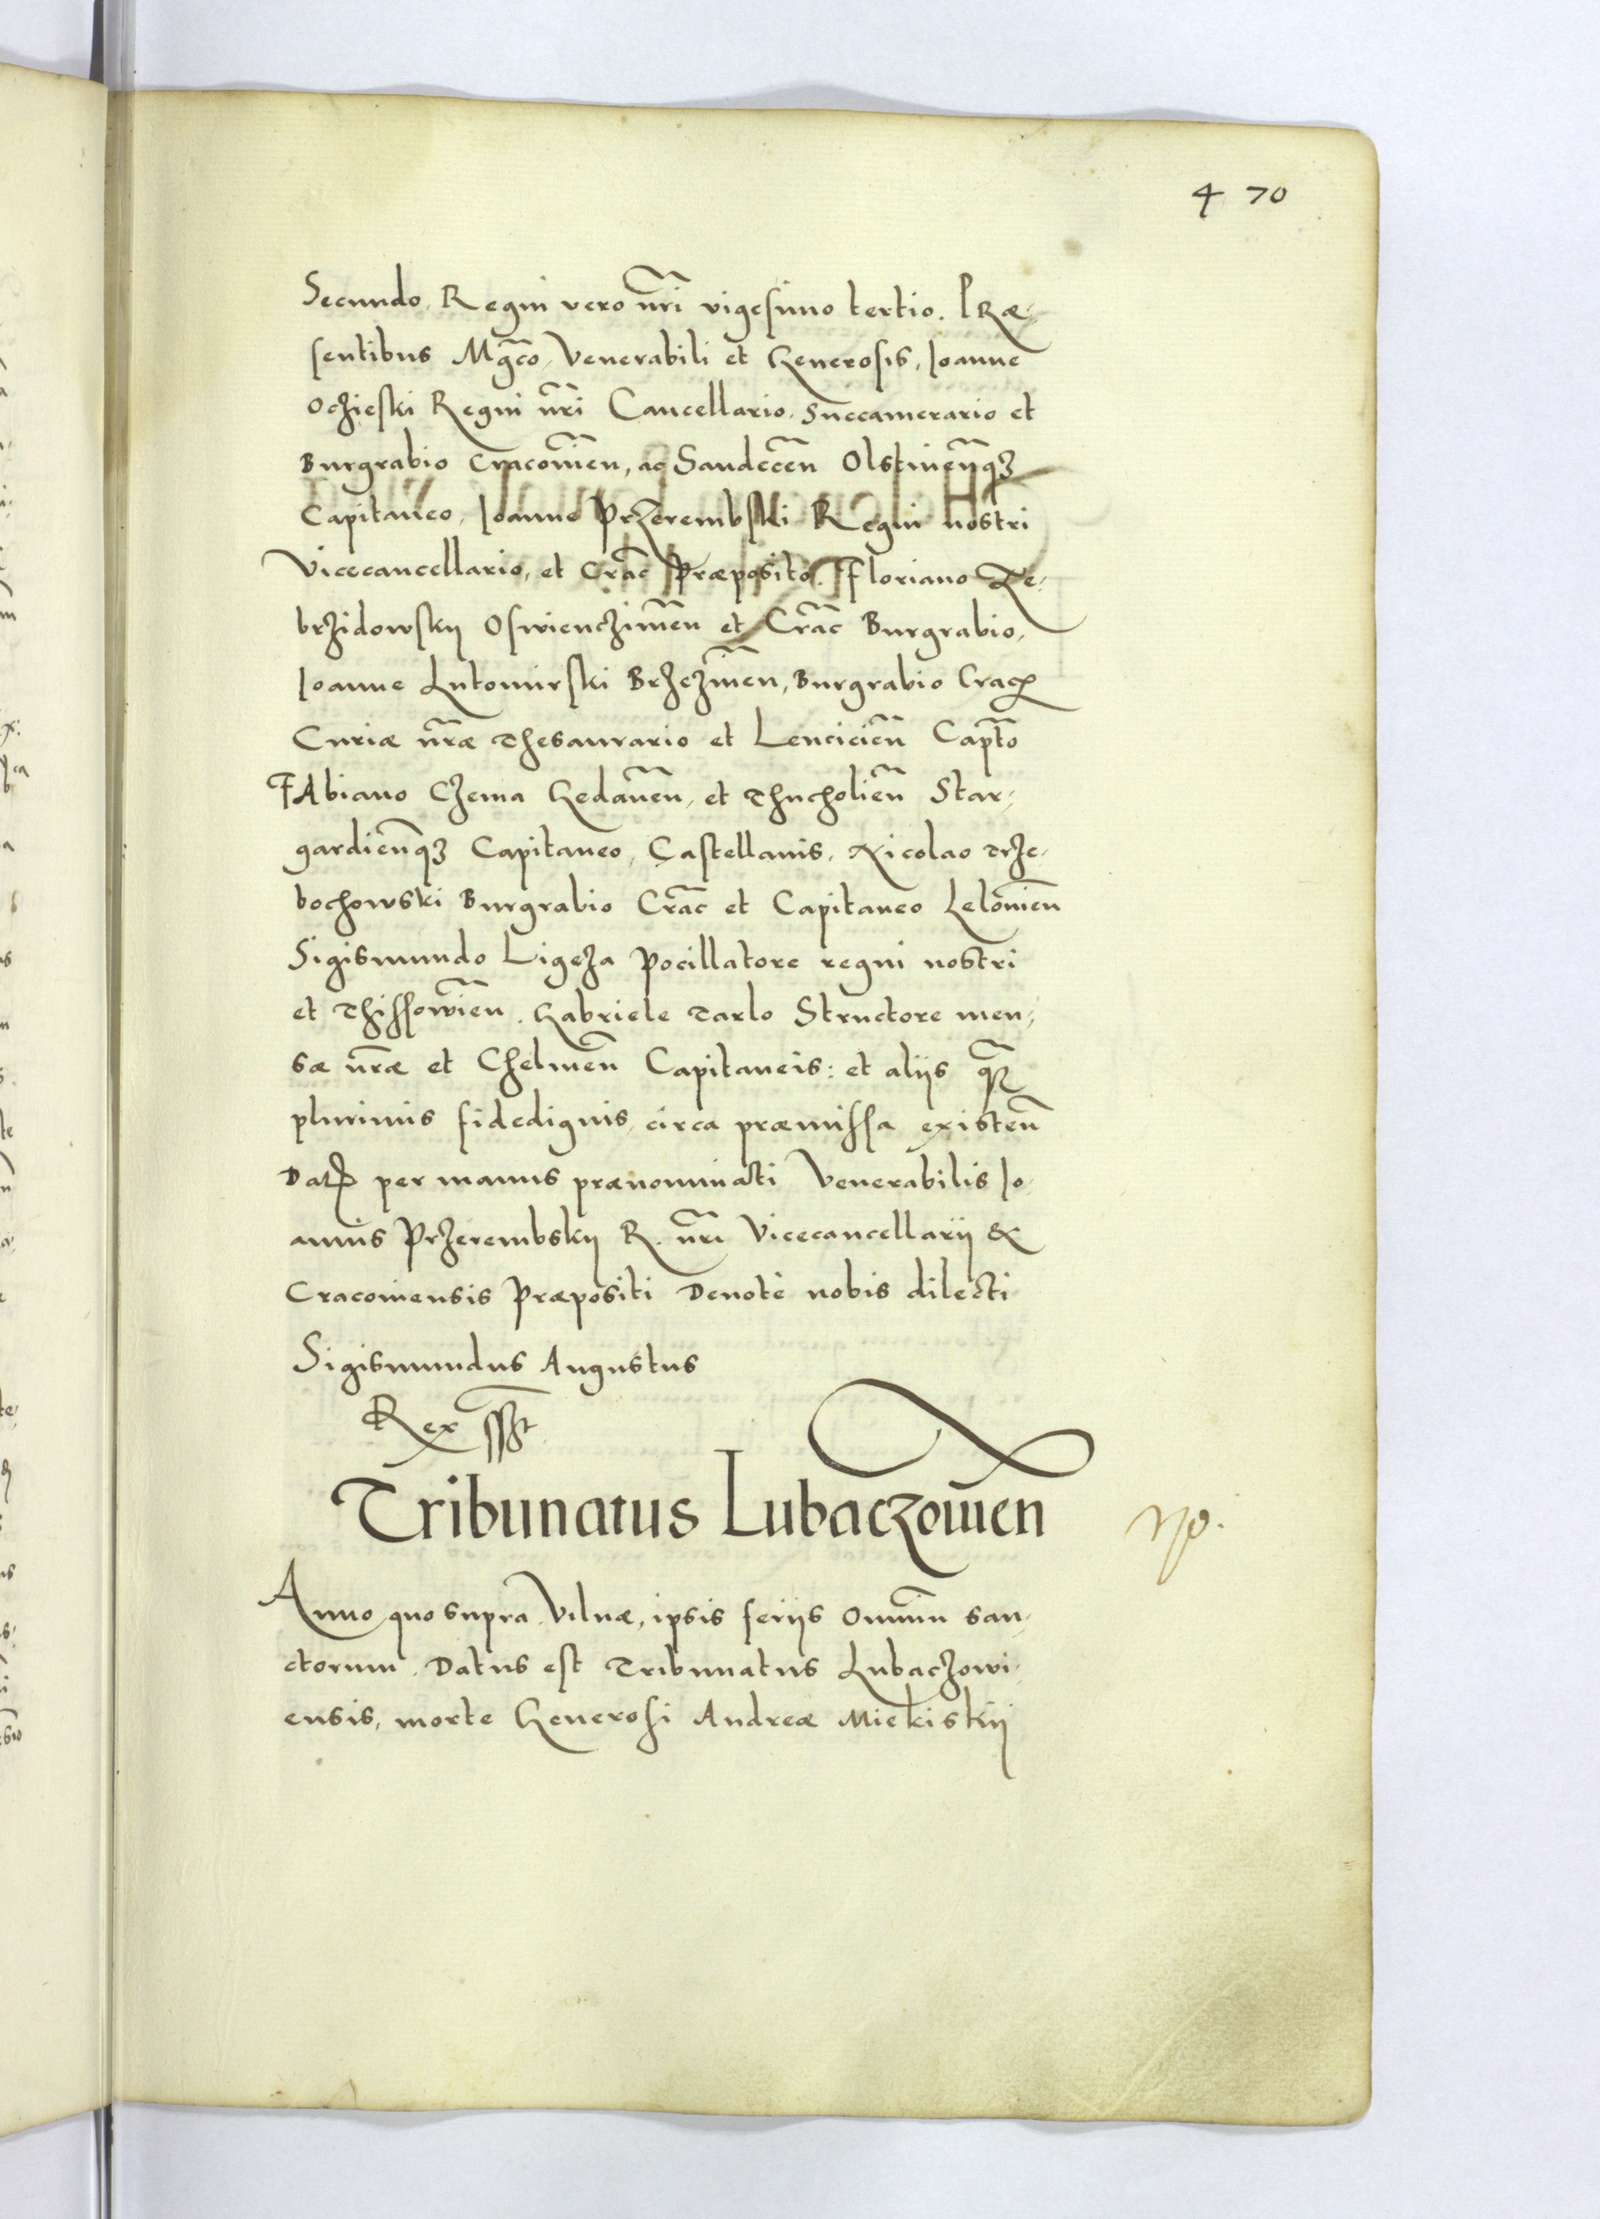 470
Secundo. Regni vero nr̃i vigesimo tertio. PRæ-
sentibus Mg̃co, Venerabili et Generosis, Joanne
Oczieski Regni nr̃i Cancellario, Succamerario et
Burgrabio Cracovień, ac Sandeceñ Olstineñq3
Capitaneo, Joanne Przerembski Regni nostri
Vicecancellario, et Crac̃ Præposito. Floriano Ze-
brzidowskij Oswiencziméñ et Crac̃ Burgrabio,
Joanne Lutomirski Brzezineñ, Burgrabio Crac̃
Curiæ nr̃æ Thesaurario et Lencicień Capt̃o
FAbiano Czema Gedaneñ, et Thucholień Star-
gardieñq3 Capitaneo, Castellanis, Nicolao Trze-
bochowski Burgrabio Crac̃ et Capitaneo Lelovień
Sigismundo Ligeza Pocillatore regni nostri
et Thissowień. Gabriele Tarlo Structore men-
sæ nr̃æ et Chelmeñ Capitaneis: et aliis q̃
plurimis fidedignis, circa præmissa existeñ
Dat̃ per manus prænominati Venerabilis Jo-
annis Przerembskij R. nr̃i Vicecancellarij &
Cracoviensis Præpositi Devotè nobis dilecti
Sigismundus Augustus
Rex sst
Tribunatus Lubaczovień
Anno quo supra Vilnæ, ipsis feriis Omniũ San-
ctorum. Datus est Tribunatus Lubaczowi-
ensis, morte Generosi Andreæ Miekiskij